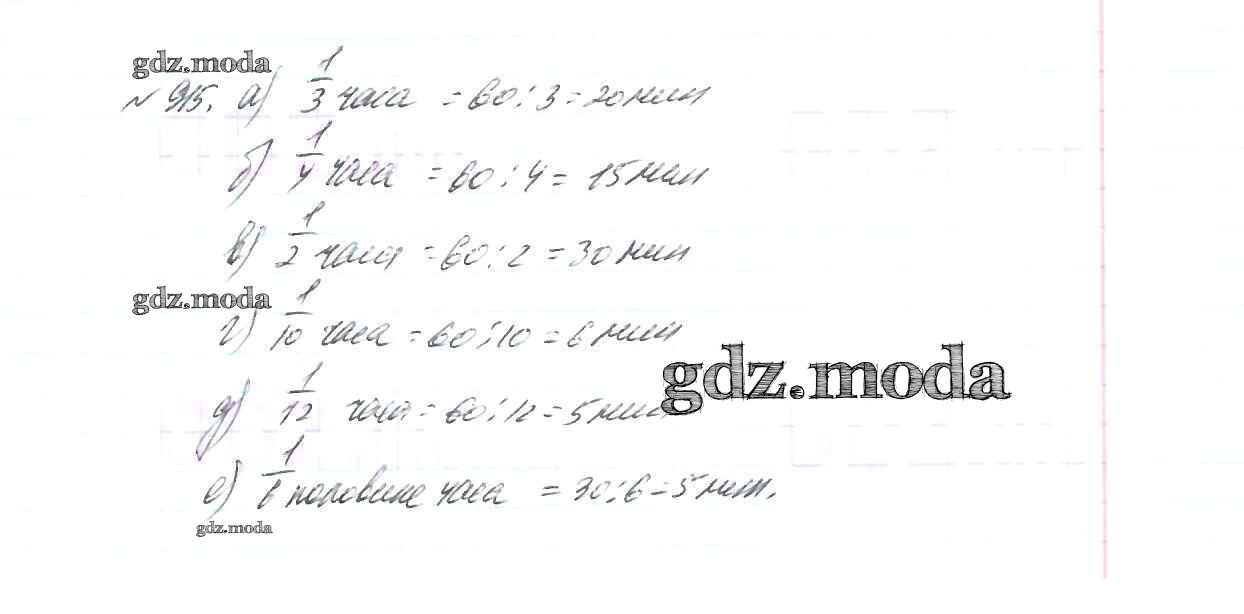 gdz.moda
№ 915. а) 1/3 часа = 60 : 3 = 20 мин
б) 1/4 часа = 60 : 4 = 15 мин
в) 1/2 часа = 60 : 2 = 30 мин
gdz.moda
г) 1/10 часа = 60 : 10 = 6 мин
gdz.moda
д) 1/12 часа = 60 : 12 = 5 мин
е) 1/6 половине часа = 30 : 6 = 5 мин.
gdz.moda